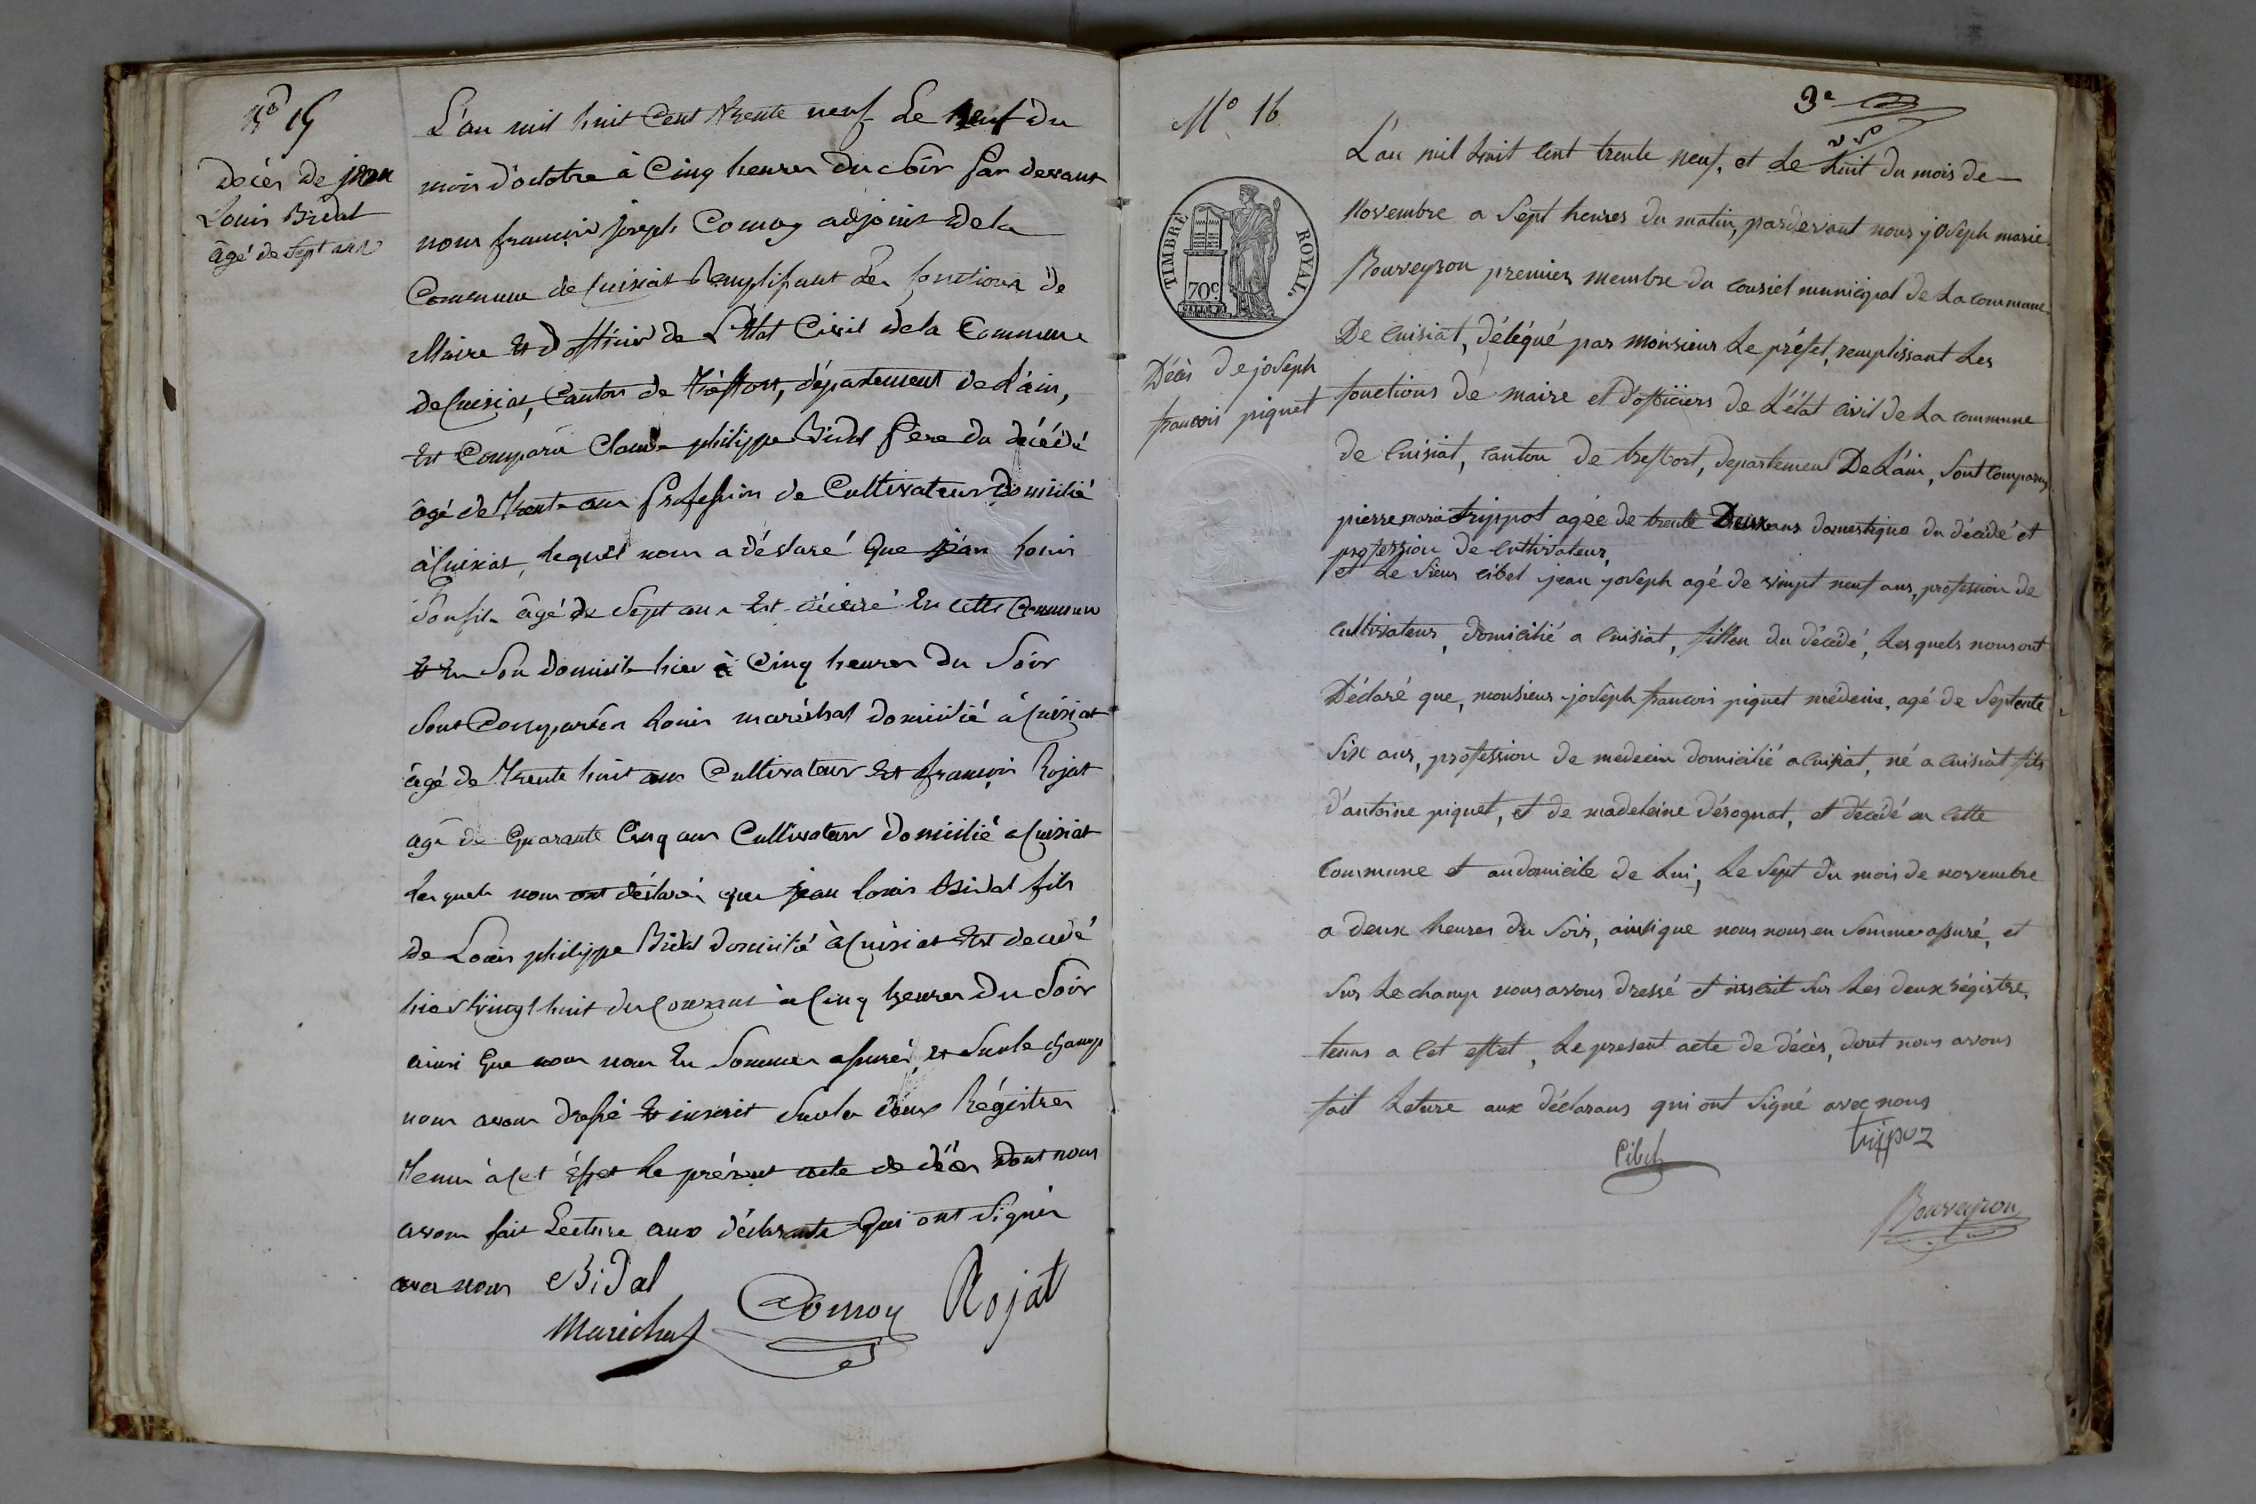 N° 15
Décès de jean
Louis Bidal
âgé de Sept ans
L'an mil huit Cent trente neuf Le neuf du
mois d'octobre à Cinq heures du Soir Par devant
nous françois joseph Comoy adjoint de la
Commune de Cuisiat Remplissant Les fonctions de
Maire et d'officier de L'Etat Civil de la Commune
de Cuisiat, Canton de Tréffort, département de L'ain,
Est Comparu Claude philippe Bidal Père du décédé
âgé de Trente ans Profession de Cultivateur Domicilié
à Cuisiat, lequel nous a déclaré Que jean Louis
Son fils âgé de Sept ans Est décédé En cette Commune
Et En Son Domicile hier à Cinq heures Du Soir
Sont Comparus Louis maréchal domicilié à Cuisiat
âgé de Trente huit ans Cultivateur Et françois Rojat
agé de Quarante Cinq ans Cultivateur Domicilié a Cuisiat
les quels nous ont déclaré que jean Louis Bidal fils
de Louis philippe Bidal Domicilié à Cuisiat Est décédé
hier Vingt huit du Courant à Cinq heures Du Soir
ainsi Que nous nous En Sommes assuré, et Sur le champ
nous avons dressé Et inscrit Sur les deux Régistres
Tenus à Cet Effet Le présent acte de décès Dont nous
avons fait Lecture aux déclarants Qui ont Signés
avec nous Bidal
Marechal Comoy Rojat
3e
N° 16
TIMBRE ROYAL.
70c
Décès de joseph
francois piquet
L'an mil huit cent trente neuf, et Le huit du mois de
Novembre a Sept heures du matin, pardevant nous joseph marie
Bouveyron premier membre du conseil municipal de La commune
De Cuisiat, délégué par Monsieur Le préfet, remplissant Les
fonctions de maire et d'officiers de L'état civil de La commune
de Cuisiat, canton de treffort, departement De L'ain, Sont comparus
pierre marie trippot agée de trente Deux ans domestique du décédé et
profession de Cultivateur,
et Le Sieur cibel jean joseph agé de vingt neuf ans, profession de
cultivateur, domicilié a Cuisiat, filleu du décédé, Les quels nous ont
Déclaré que, monsieur joseph francois piquet médecin, agé de Septente
Six ans, profession de medecin domicilié a Cuisiat, né a Cuisiat fils
d'antoine piquet, et de madeleine dérognat, et décédé en cette
Commune et au domicile de Lui, Le Sept du mois de novembre
a deux heures du Soir, ainsi que nous nous en Somme assuré, et
Sur Le champ nous avons dressé et inscrit Sur Les deux régistre,
tenus a Cet effet, Le present acte de décès, dont nous avons
fait Leture aux déclarans qui ont Signé avec nous
Cibel trippoz
Bouveyron